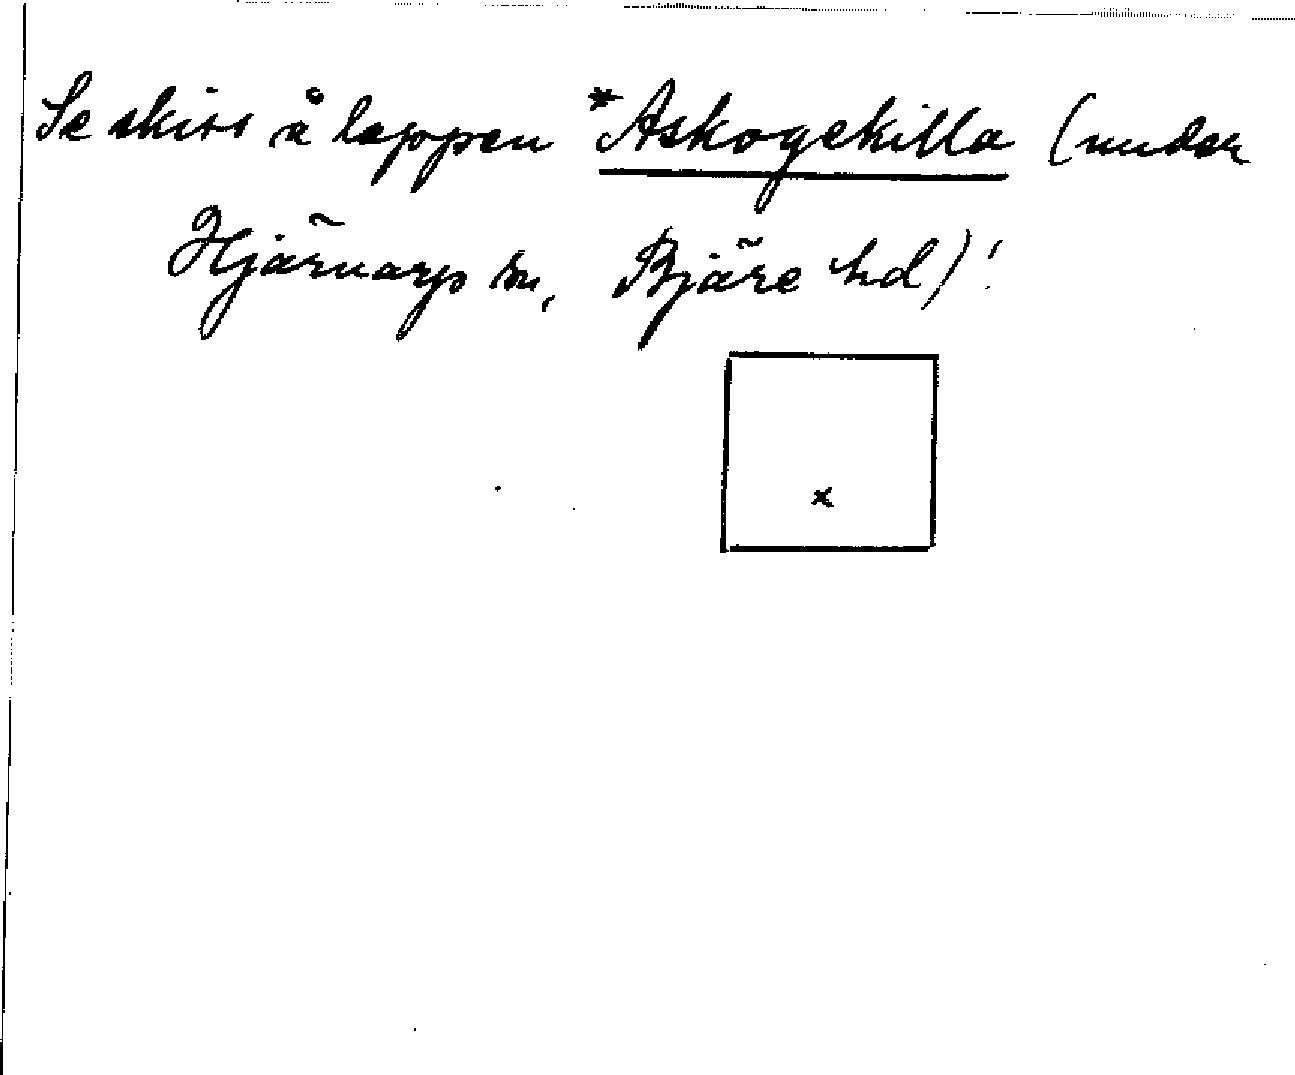 Se skiss å lappen *Askogekilla (under
Hjärnarps sn, Bjäre hd)!
x